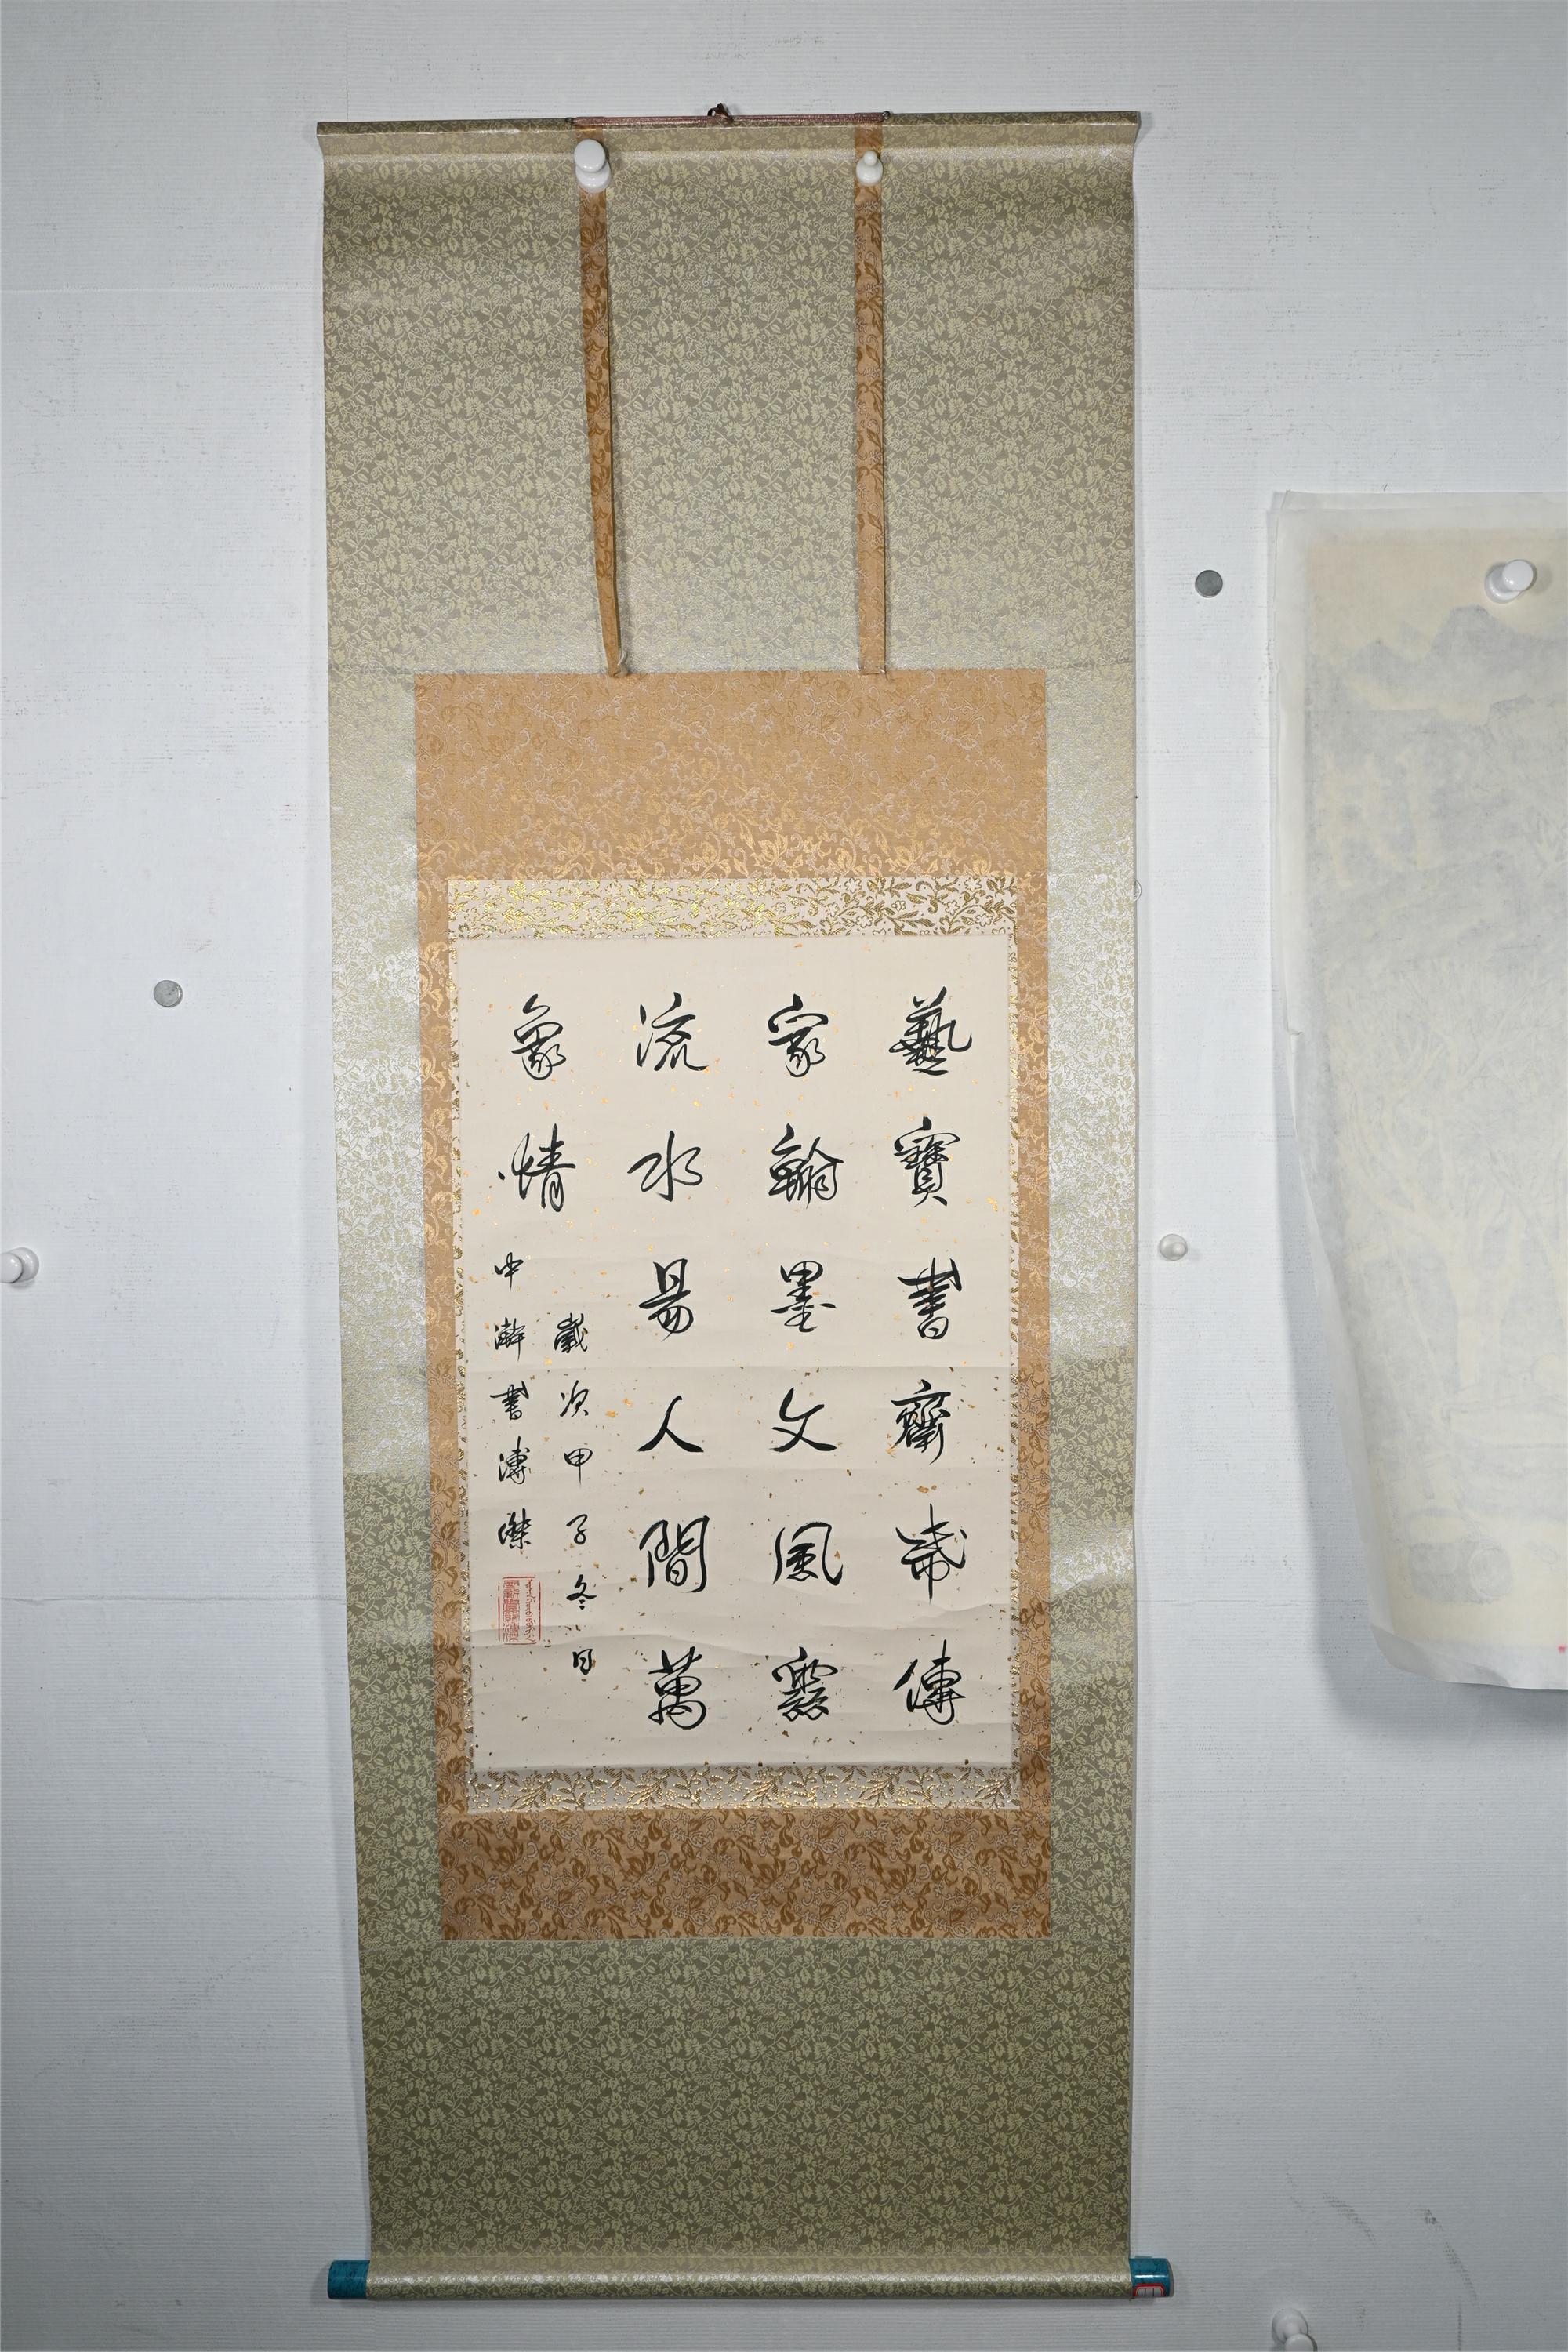 藝寶書齋歲傳
家翰墨文風霧
流水昜人間萬
象情
歲次甲子冬日
中澣書溥傑